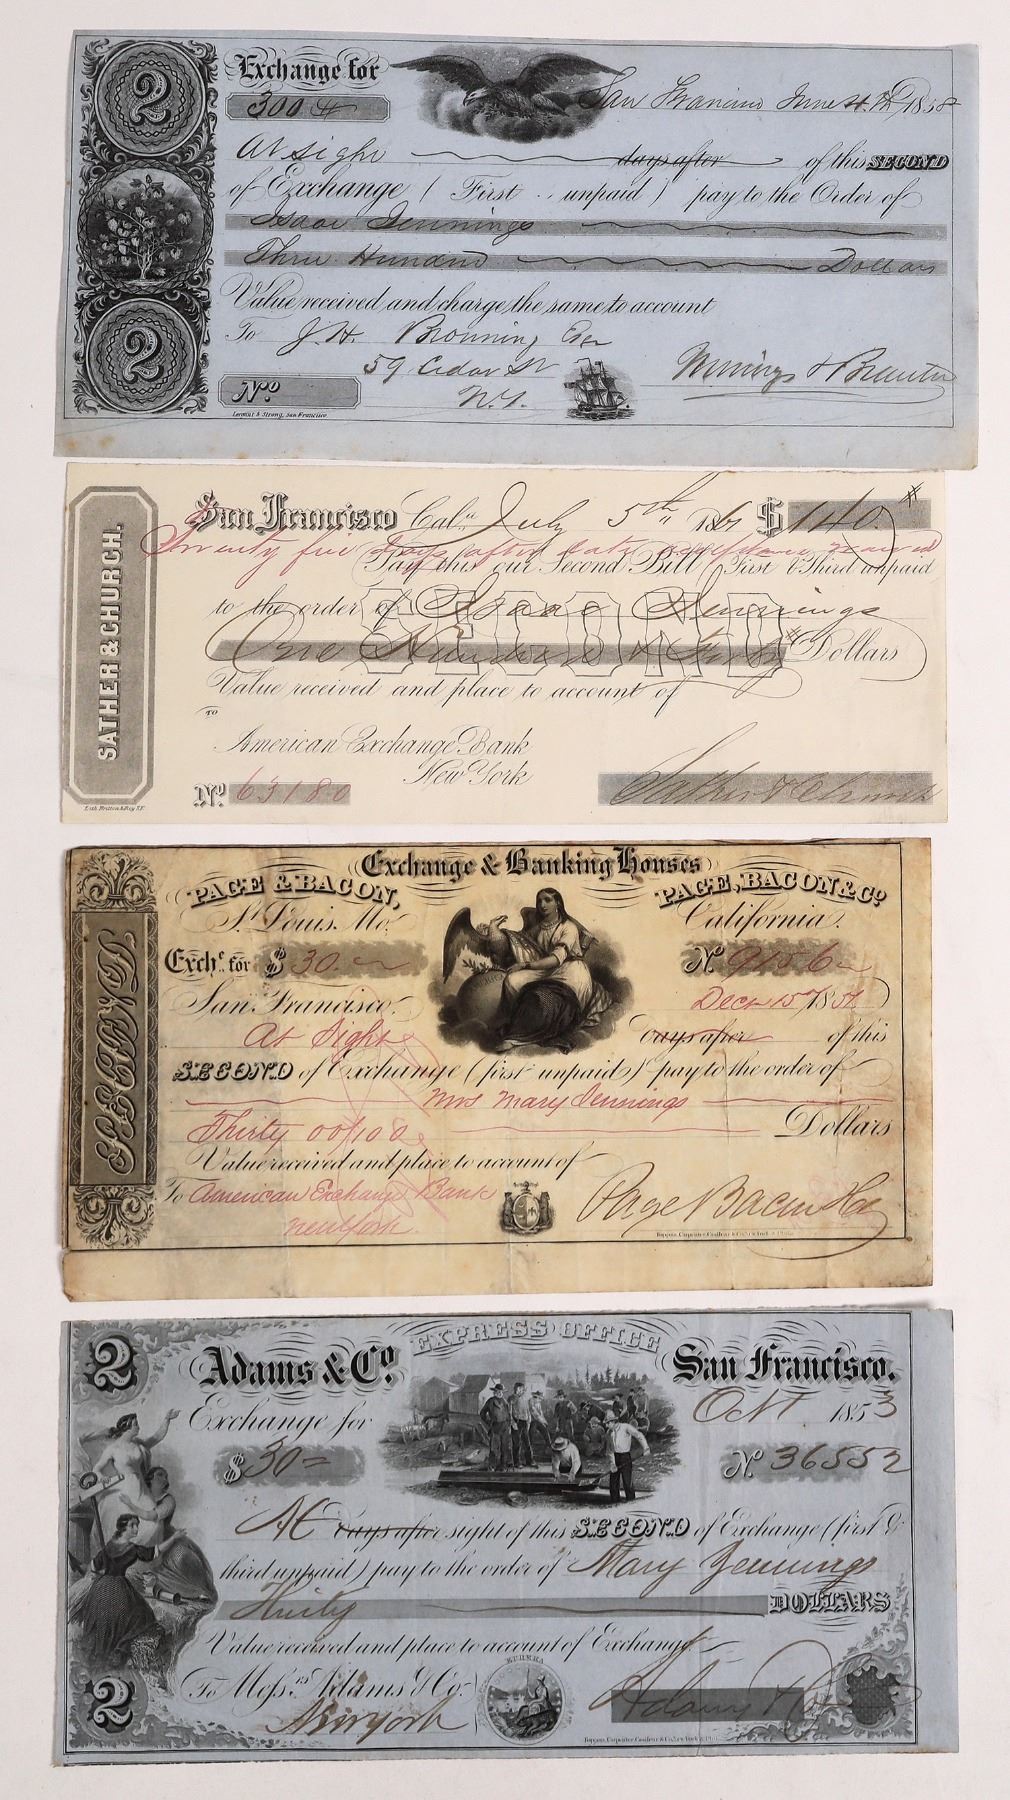 2
Exchange for
300
San Francisco June 1858
At sight days after of this SECOND
of Exchange (First unpaid) pay to the Order of
Isaac Jennings
Three Hundred Dollars
Value received and charge the same to account
To J. H. Browning Esq
59 Cedar St
N.Y.
2
No
San Francisco
SATHER & CHURCH.
San Francisco Cal. July 5th 1861 $ 140
Twenty five days after date acceptance waived
Pay this our Second Bill (First & Third unpaid
to the order of Isaac Jennings
SECOND
One Hundred & Forty Dollars
Value received and place to account of
TO
American Exchange Bank
New York
No 63180
Sather & Church
Lith. Britton & Rey S.F.
Exchange & Banking Houses
PAGE & BACON, PAGE, BACON & Co
St Louis, Mo. California.
Exche. for $ 30.00 No 9156
San Francisco. Dec 15 1854
At Sight days after of this
SECOND of Exchange (first unpaid) pay to the order of
Mrs Mary Jennings
Thirty 00/100 Dollars
Value received and place to account of
To American Exchange Bank
New York
Page Bacon & Co
Toppan, Carpenter, Casilear & Co.
Adams & Co. EXPRESS OFFICE San Francisco.
2
Exchange for Oct 1853
$ 30 No 36552
At days after sight of this SECOND of Exchange (first &
third unpaid) pay to the order of Mary Jennings
Thirty DOLLARS
Value received and place to account of Exchange
To Messrs. Adams & Co.
New York
EUREKA
Adams & Co
2
Toppan, Carpenter, Casilear & Co.